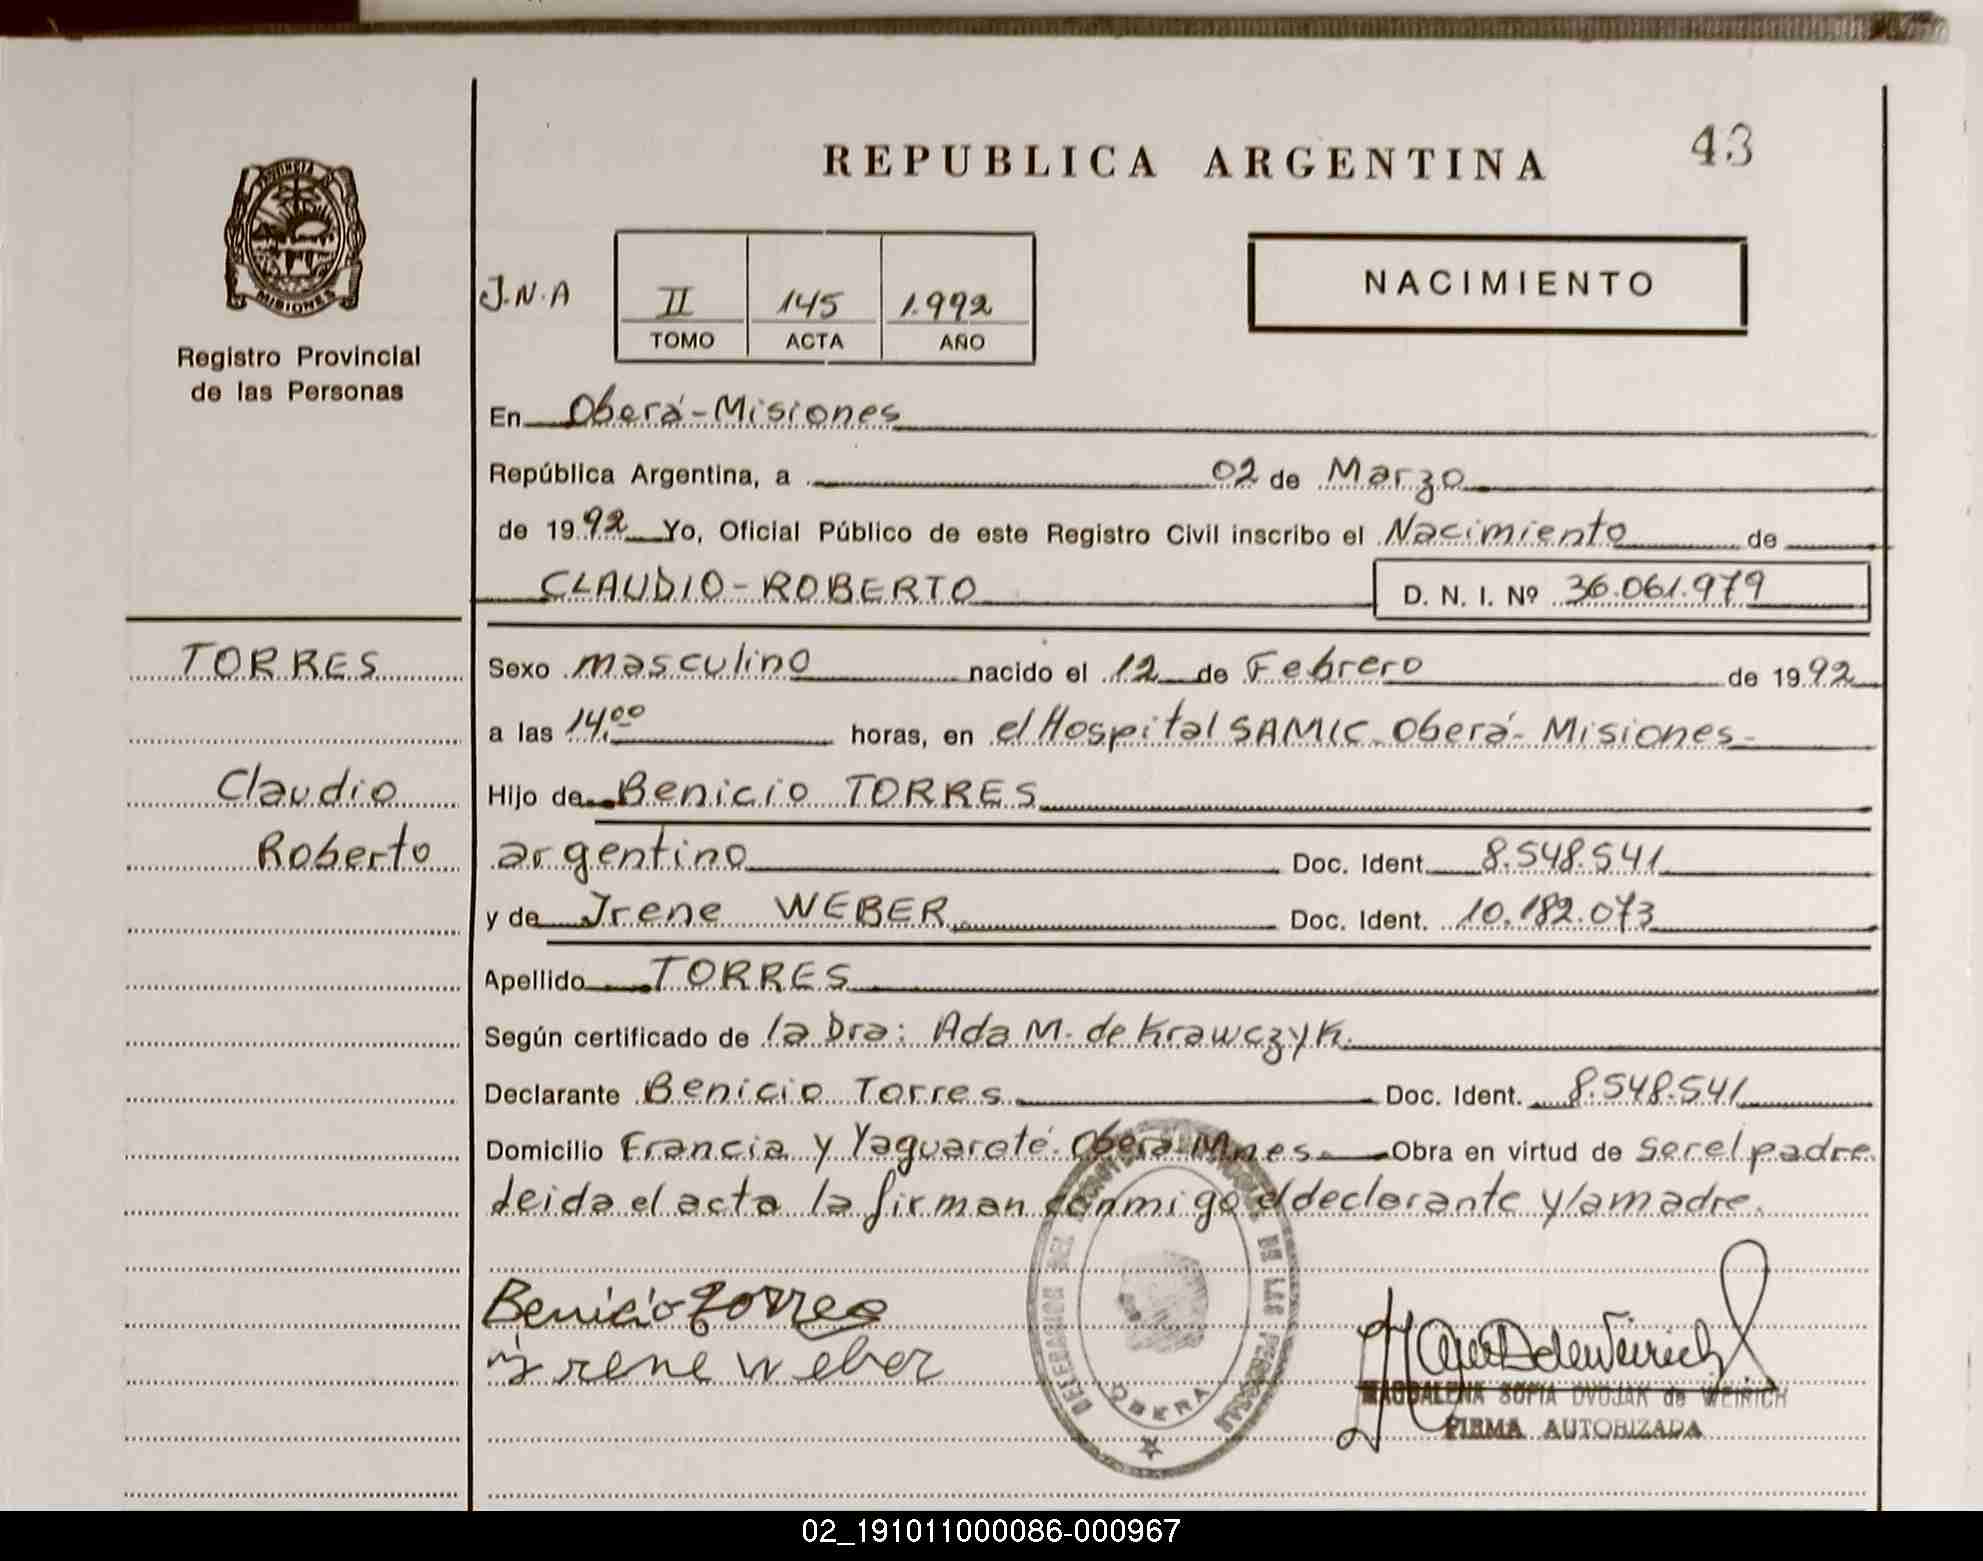 REPUBLICA ARGENTINA
43
PROVINCIA DE
MISIONES
Registro Provincial
de las Personas
J.N.A
II
145
1.992
TOMO
ACTA
AÑO
NACIMIENTO
En Oberá-Misiones
República Argentina, a 02 de Marzo
de 1992 Yo, Oficial Público de este Registro Civil inscribo el Nacimiento de
CLAUDIO-ROBERTO D. N. I. Nº 36.061.979
TORRES
Claudio
Roberto
Sexo masculino nacido el 12 de Febrero de 1992
a las 14.00 horas, en el Hospital SAMIC Oberá-Misiones-
Hijo de Benicio TORRES
argentino Doc. Ident. 8.548.541
y de Irene WEBER. Doc. Ident. 10.182.073
Apellido TORRES
Según certificado de la Dra: Ada M. de Krawczyk.
Declarante Benicio Torres Doc. Ident. 8.548.541
Domicilio Francia y Yaguareté-Oberá Mnes. Obra en virtud de ser el padre
leida el acta la firman conmigo el declarante y la madre.
Benicio Torres
Irene Weber
DELEGACION DEL REGISTRO PROVINCIAL DE LAS PERSONAS
OBERA
MAGDALENA SOFIA DVOJAK de WEIRICH
FIRMA AUTORIZADA
02_191011000086-000967